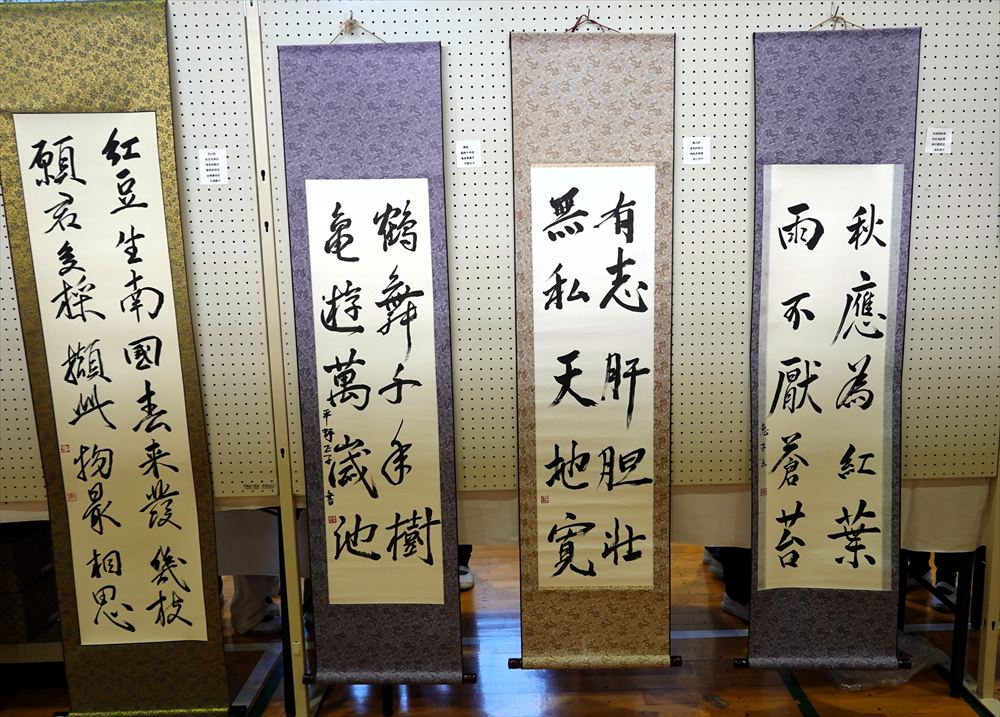 秋應為紅葉
雨不厭蒼苔
有志肝胆壮
無私天地寛
鶴舞千年樹
亀遊萬歳池
紅豆生南國春来發幾枝
願君多採擷此物最相思